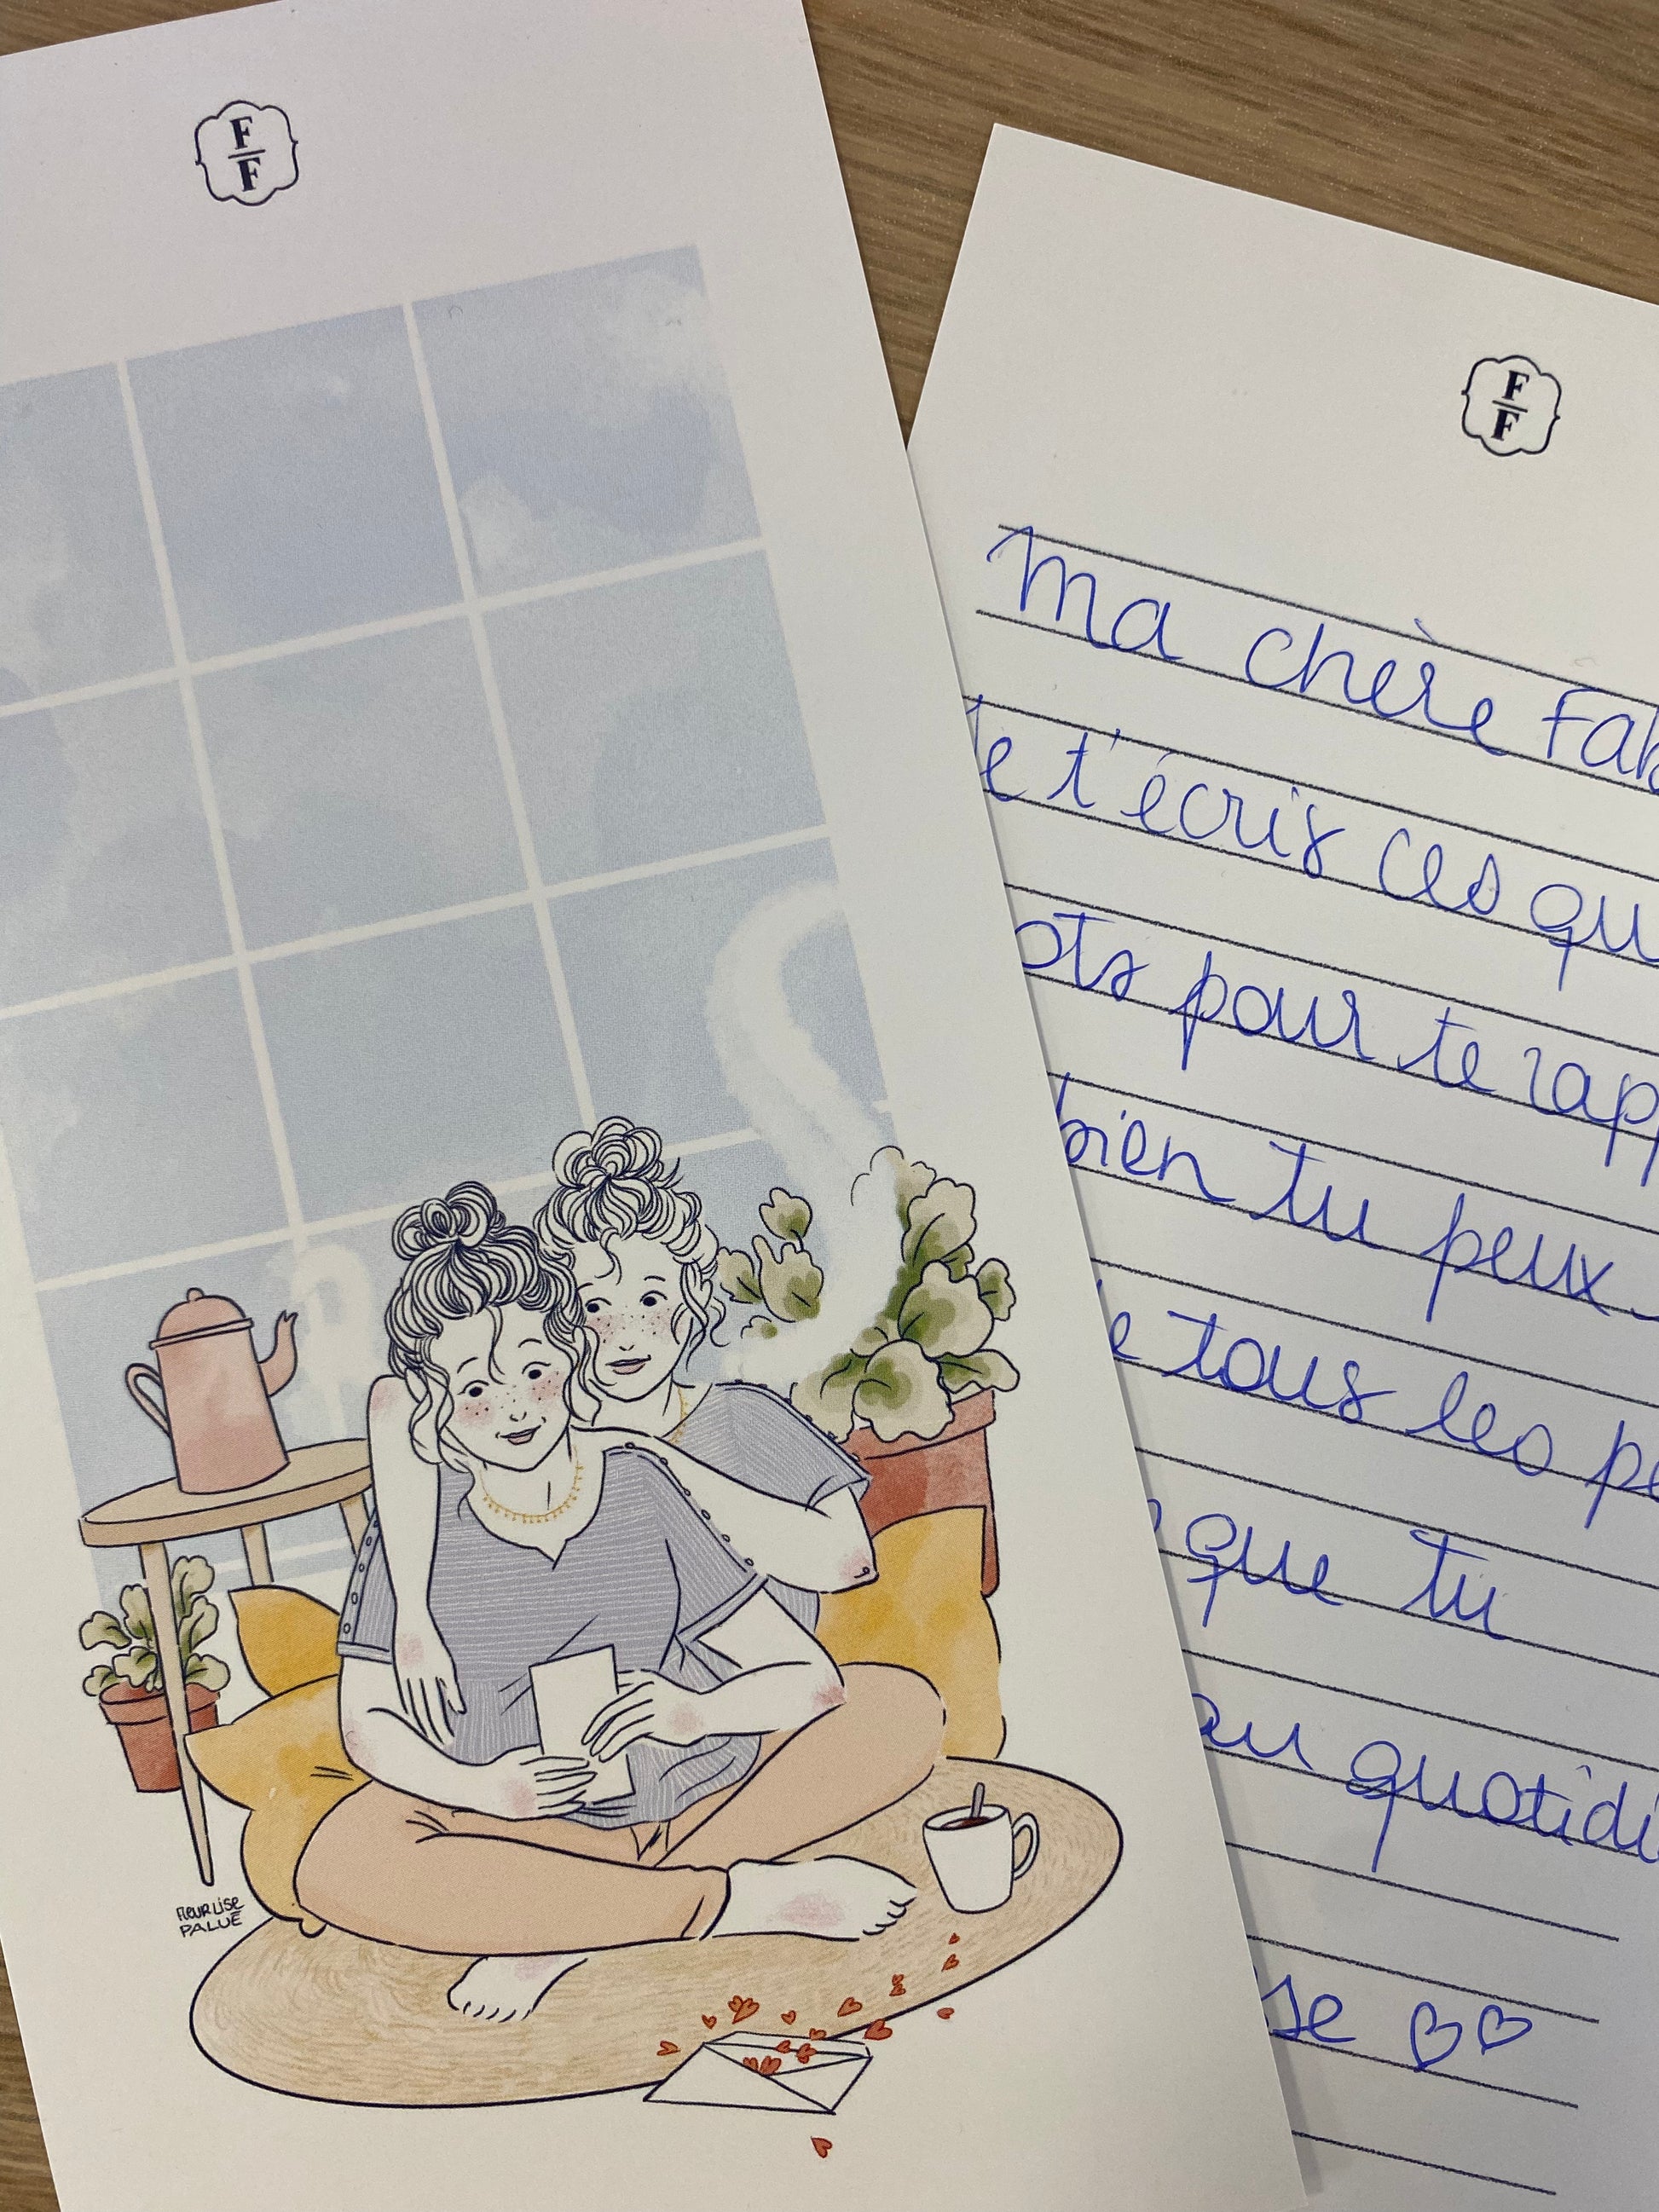 F
F
FLEUR LISE
PALUE
F
F
Ma chère Fab
Je t'écris ces qu
ots pour te rapp
bien tu peux
e tous les pe
que tu
au quotidi
se ♡♡